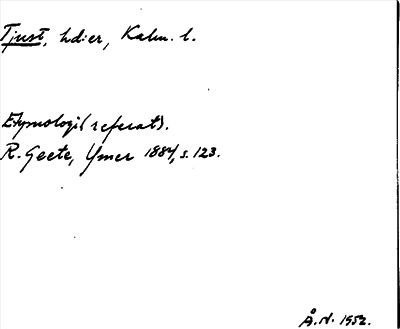 Tjust, hd:er, Kalm. l.
Etymologi (referat).
R. Geete, Ymer 1884, s. 123.
Å.N. 1952.